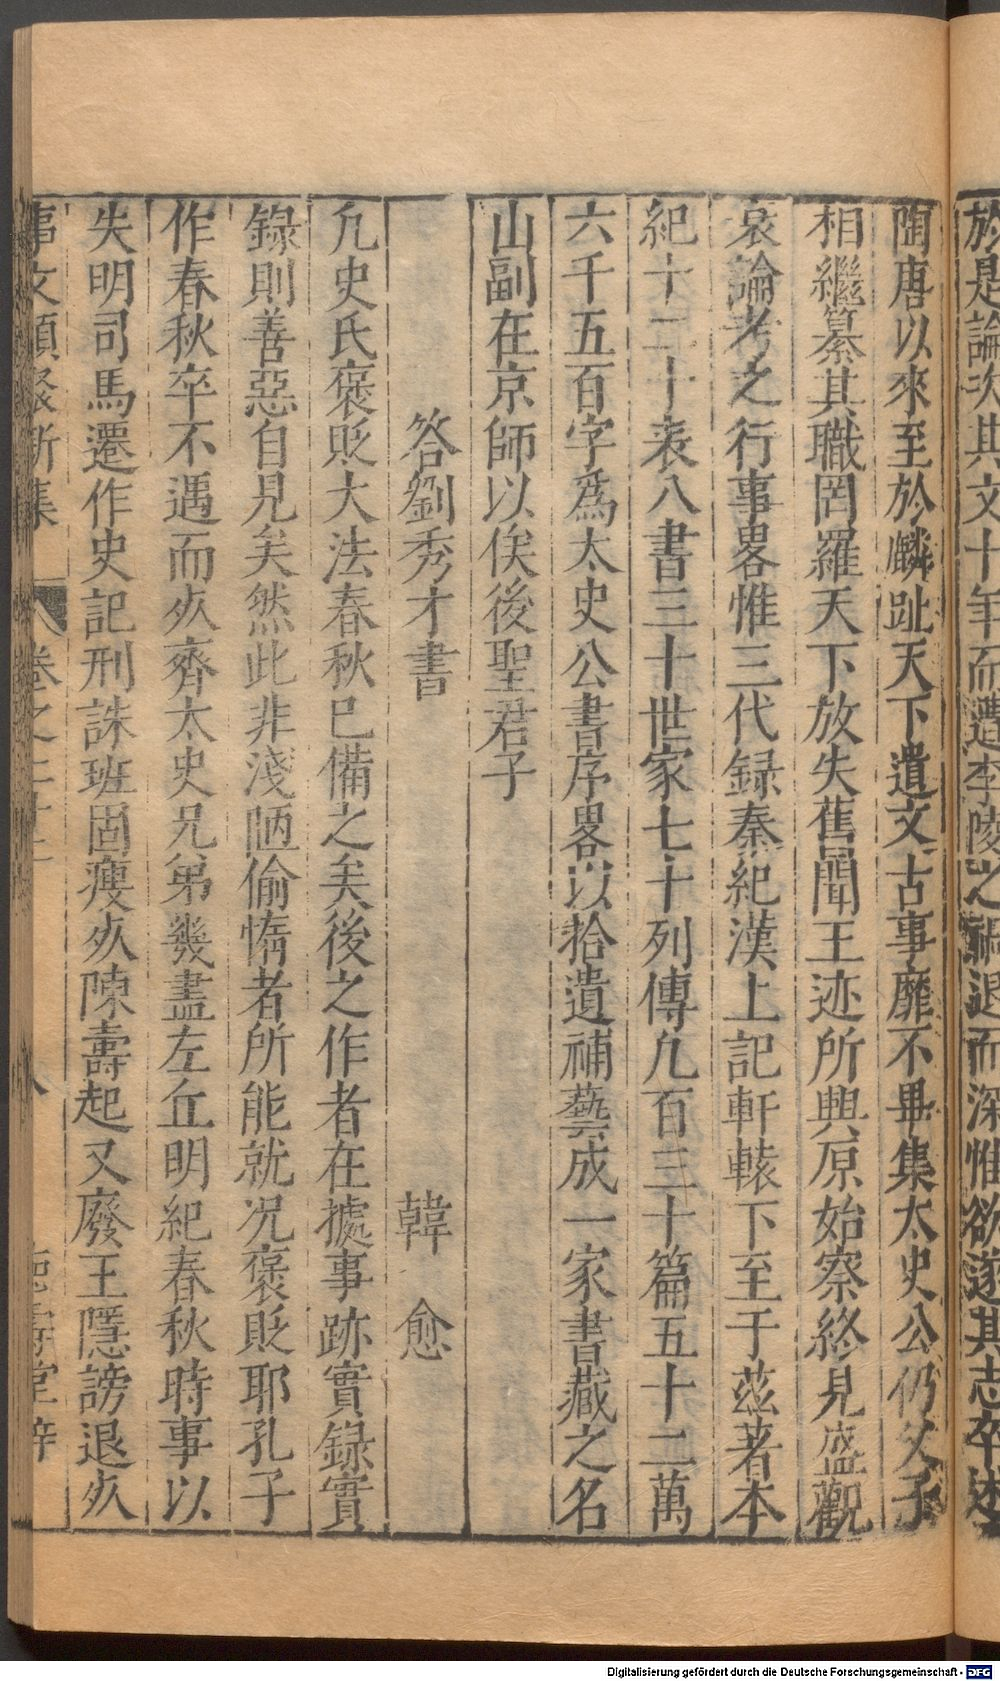 於是論次其文十年而遭李陵之禍退而深惟欲遂其志卒述
陶唐以來至於麟趾天下遺文古事靡不畢集太史公仍父子
相繼纂其職罔羅天下放失舊聞王迹所興原始察終見盛觀
衰論考之行事畧惟三代録秦紀漢上記軒轅下至于茲著本
紀十二十表八書三十世家七十列傳凡百三十篇五十二萬
六千五百字爲太史公書序畧以拾遺補藝成一家書藏之名
山副在京師以俟後聖君子
答劉秀才書 韓愈
凡史氏褒貶大法春秋已備之矣後之作者在據事跡實録實
錄則善惡自見矣然此非淺陋偷惰者所能就况褒貶耶孔子
作春秋卒不遇而死齊太史兄弟幾盡左丘明紀春秋時事以
失明司馬遷作史記刑誅班固瘐死陳壽起又廢王隱謗退死
事文類聚新集 卷之二十二 八
Digitalisierung gefördert durch die Deutsche Forschungsgemeinschaft - DFG